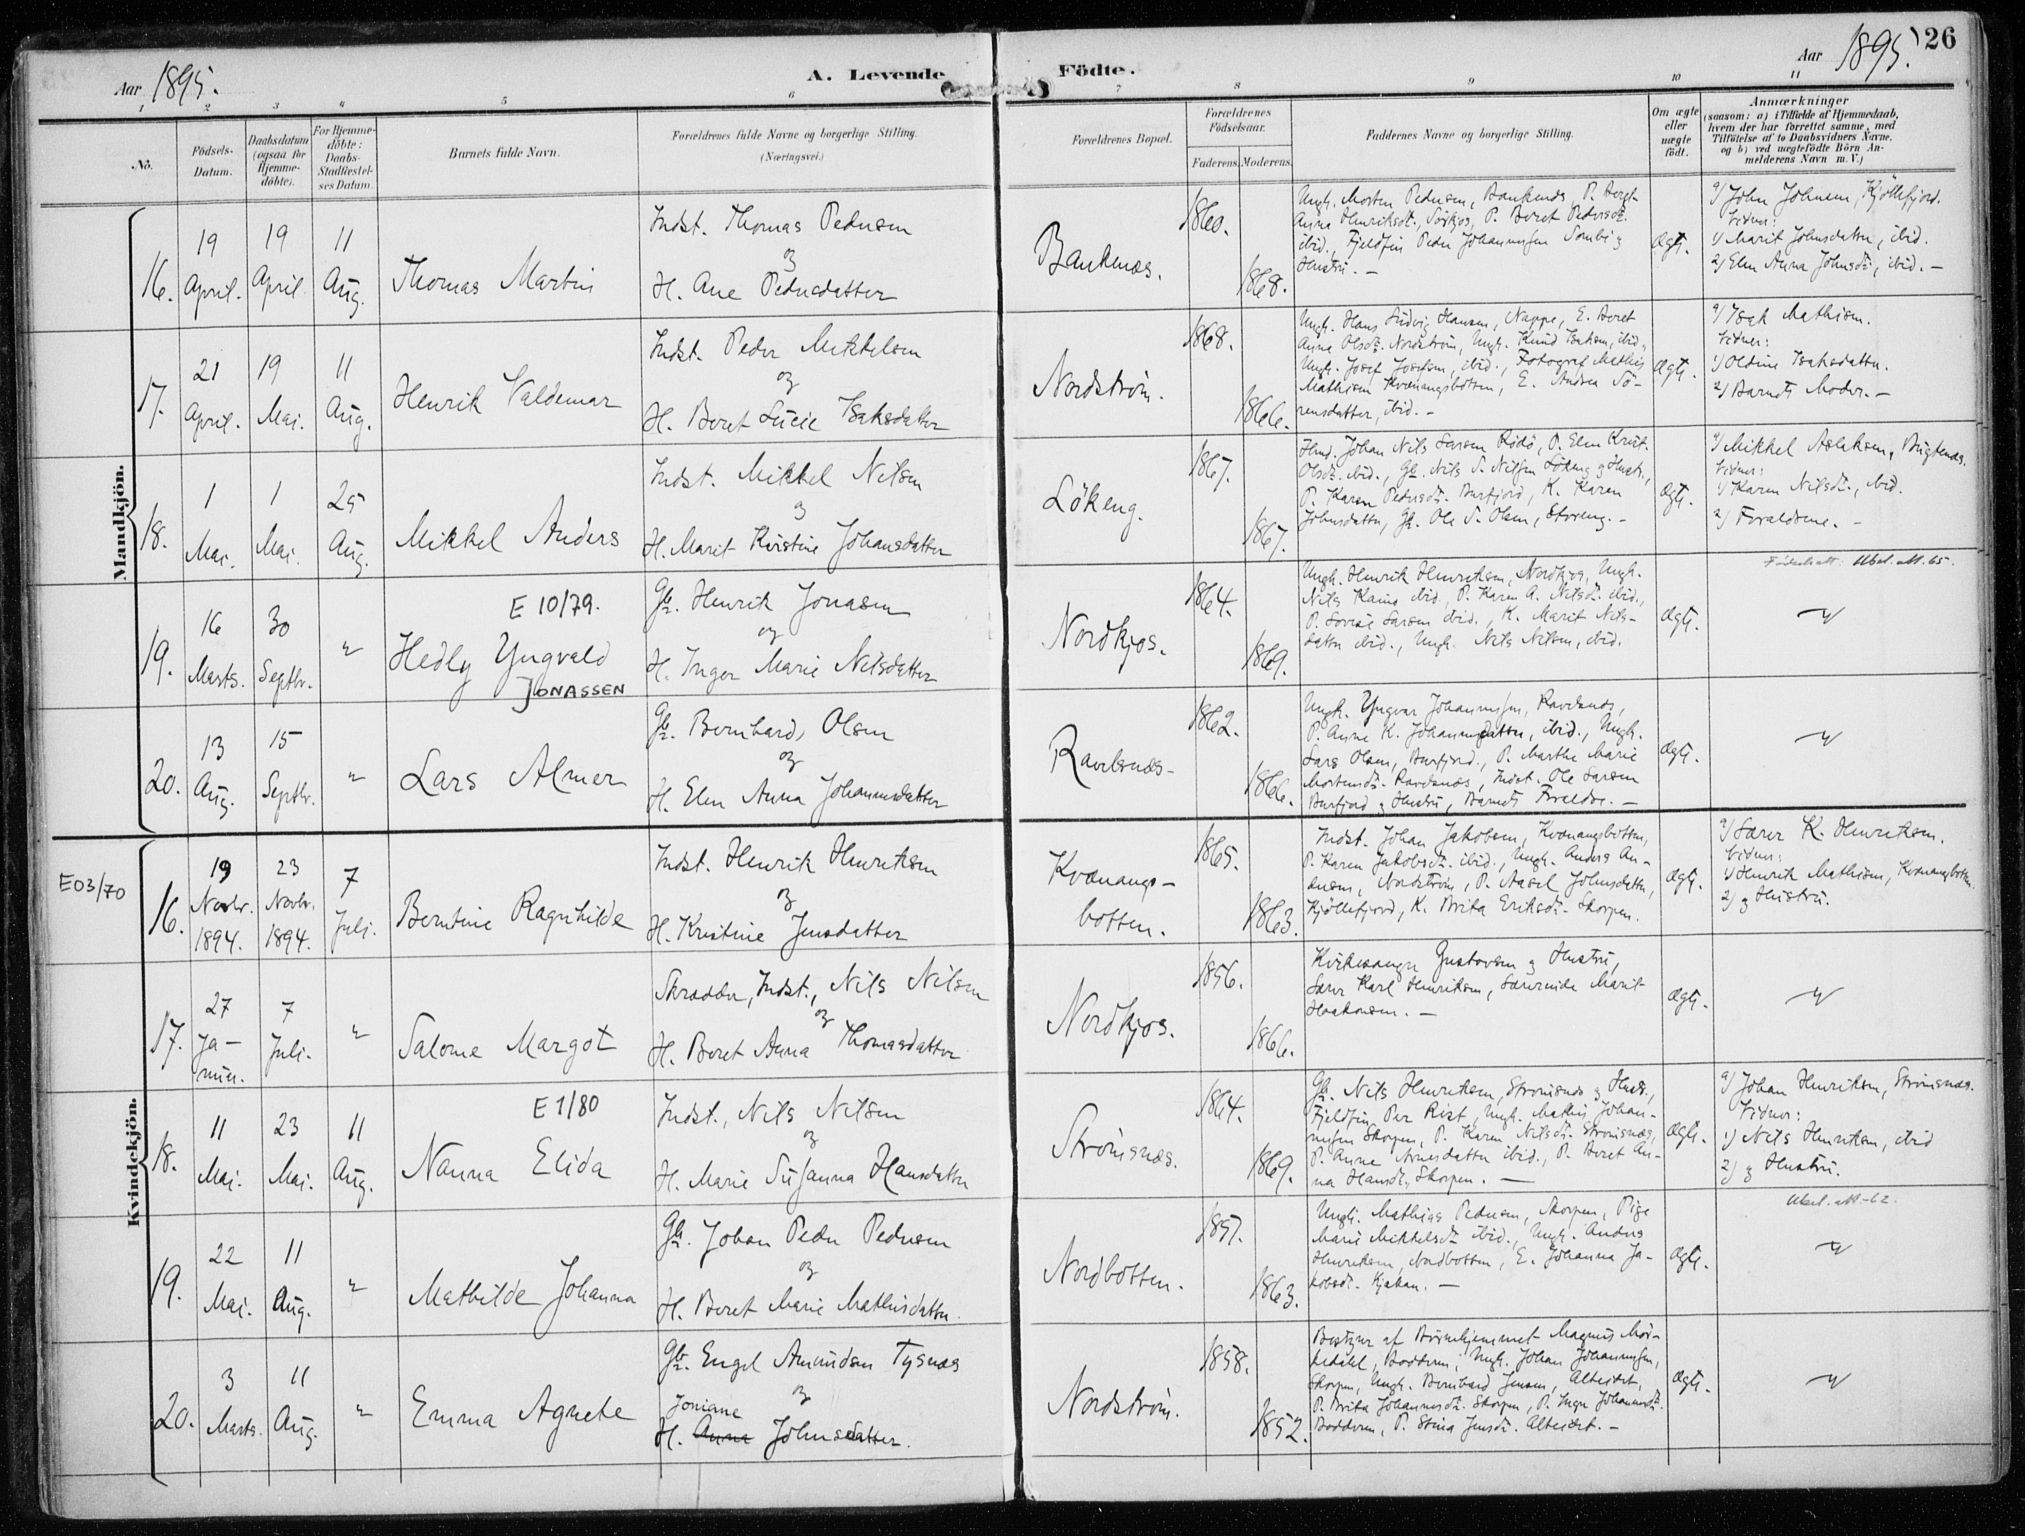 Aar 1895.
A. Levende Födte.
Aar 1895.
26
1 2 3 4 5 6 7 8 9 10 11
No.
Födsels-Datum.
Daabsdatum (ogsaa for Hjemme-döbte).
For Hjemme-döbte: Daabs-Stadfæstel-ses Datum.
Barnets fulde Navn.
Forældrenes fulde Navne og borgerlige Stilling. (Næringsvei.)
Forældrenes Bopæl.
Forældrenes Födselsaar.
Faderens. Moderens.
Faddernes Navne og borgerlige Stilling.
Om ægte eller uægte födt.
Anmærkninger
(saasom: a) i Tilfælde af Hjemmedaab, hvem der har forrettet samme, med Tilföielse af to Daabsvidners Navne. og b) ved uægtefödte Börn An-melderens Navn m. V.)
Mandkjön.
16.
19 April.
19 April
11 Aug.
Thomas Martin
Indst. Thomas Pedersen
og
H. Ane Pedersdatter
Bankenæs.
1860.
1868.
Ungk. Morten Pedersen, Bankenæs P. Beret
Anna Henriksdt. Sörkjos, P. Beret Pedersdt.
ibid., Fjeldfin Peder Johannesen Sombi og
Hustru. —
Ægt.
a) John Johnsen, Kjöllefjord.
Vidner:
1) Marit Johnsdatter, ibid.
2) Elen Anna Johnsdt., ibid. —
17.
21 April.
19 Mai.
11 Aug.
Henrik Valdemar
Indst. Peder Mikkelsen
og
H. Beret Lucie Isaksdatter
Nordström.
1868.
1866.
Ungk. Hans Ludvig Hansen, Nappe, E. Beret
Anne Olsdt. Nordström, Ungk. Knud Isaksen, ibid.,
Ungk. Josef Josefsen, ibid., Fotograf Mathis
Mathisen Kvænangsbotten, E. Andrea Sö-
rensdatter, ibid. —
Ægt.
a) Isak Mathisen.
Vidner:
1) Oldine Isaksdatter.
2) Barnets Moder. —
18.
1 Mai.
1 Mai.
25 Aug.
Mikkel Anders
Indst. Mikkel Nilsen
og
H. Marit Kristine Johansdatter
Lökeng.
1867.
1867.
Johan Nils Larsen Rödö, P. Elen Krist.
Olsdt. ibid., Gb. Nils S. Nilsen Lökeng og Hustr.,
P. Karen Pedersdt. Burfjord, K. Karen
Johnsdatter, Gb. Ole S. Olsen, Storeng. —
Ægt.
a) Mikkel Aslaksen,
Vidner:
1) Karen Nilsdt., ibid.
2) Forældrene. —
19.
16 Marts.
30 Septbr.
"
E 10/79.
Hedly Yngvald
JONASSEN
Gb. Henrik Jonasen
og
H. Inger Marie Nilsdatter
Nordkjos.
1864.
1869.
Ungk. Henrik Henriksen, Nordkjos, Ungk.
Nils Kaino ibid., P. Karen A. Nilsdt. ibid.,
P. Lovise Larsen ibid., K. Marit Nils-
datter ibid., Ungk. Nils Nilsen, ibid.
Ægt.
Fødselsatt. Utsel. att. 65.
"
20.
13 Aug.
15 Septbr.
"
Lars Almer
Gb. Bernhard, Olsen
og
H. Elen Anna Johannesdatter
Ravelsnæs-
1862.
1866.
Ungk. Yngvar Johannesen, Ravelsnæs,
P. Anne K. Johannesdatter, ibid., Ungk.
Lars Olsen, Burfjord, P. Marthe Marie
Mortensdt. Ravelsnæs, Indst. Ole Larsen
Burfjord og Hustru, Barnets Forældre. —
Ægt.
"
Kvindekjön.
E03/70
16.
19 Novbr. 1894.
23 Novbr. 1894.
7 Juli.
Berntine Ragnhilde
Indst. Henrik Henriksen
og
H. Kristine Jensdatter
Kvænangs-
botten.
1865.
1863.
Indst. Johan Jakobsen, Kvænangsbotten,
P. Karen Jakobsdt. ibid., Ungk. Anders An-
dersen, Nordström, P. Aasel Johnsdatter,
Kjöllefjord, K. Brita Eriksdt. Skorpen.
Ægt.
a) Lærer K. Henriksen.
Vidner:
1) Henrik Mathisen, Kvænangsbotten
2) og Hustru.
17.
27 Ja-nuar.
7 Juli.
"
Salome Margot
Skrædder, Indst., Nils Nilsen
og
H. Beret Anna Thomasdatter
Nordkjos.
1856.
1866.
Kirkesanger Gustavsen og Hustru,
Lærer Karl Henriksen, Lærerinde Marit
Haakonsen. —
Ægt.
"
18.
11 Mai.
23 Mai.
11 Aug.
E 1/80
Nanna Elida
Indst., Nils Nilsen
og
H. Marie Susanna Hansdatter
Strömsnæs.
1864.
1869.
Gb. Nils Henriksen, Strömsnæs og Hustr.,
Fjeldfin Per Rist, Ungk. Mathis Johan-
nesen Skorpen, P. Karen Nilsdt. Strömsnæs,
P. Anne Arnesdatter ibid., P. Beret An-
na Hansdt., Skorpen. —
Ægt.
a) Johan Henriksen, Strömsnæs.
Vidner:
1) Nils Henriksen, ibid
2) og Hustru.
19.
22 Mai.
11 Aug.
"
Mathilde Johanna
Gb. Johan Peder Pedersen
og
H. Beret Marie Mathisdatter.
Nordbotten.
1857.
1863.
Ungk. Mathias Pedersen, Skorpen, Pige
Marie Mikkelsdt. ibid., Ungk. Anders
Henriksen, Nordbotten, E. Johanna Ja-
kobsdt. Kjækan. —
Ægt.
Utsel. att.-62.
"
20.
3 Marts.
11 Aug.
"
Emma Agnete
Gb. Engel Amundsen Tysnæs
og
Joniane
H. Anna Johnsdatter.
Nordström.
1858.
1852.
Bestyrer af Börnehjemmet Magnus Mör-
kedahl, Badderen, Ungk. Johan Johannesen,
Skorpen, Ungk. Bernhard Jensen, Alteidet,
P. Brita Johannesdt. Skorpen, P. Inger Johannesdt.
Badderen, P. Stina Jensdt. Alteidet. —
Ægt.
"